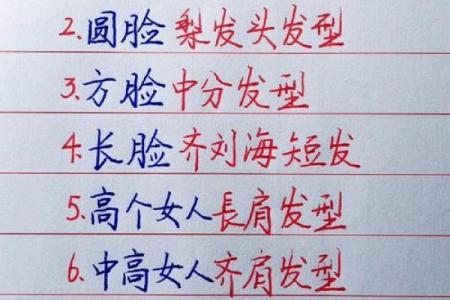 2.圆脸梨发头发型
3.方脸中分发型
4.长脸齐刘海短发
5.高个女人長肩发型
6.中高女人齐肩发型